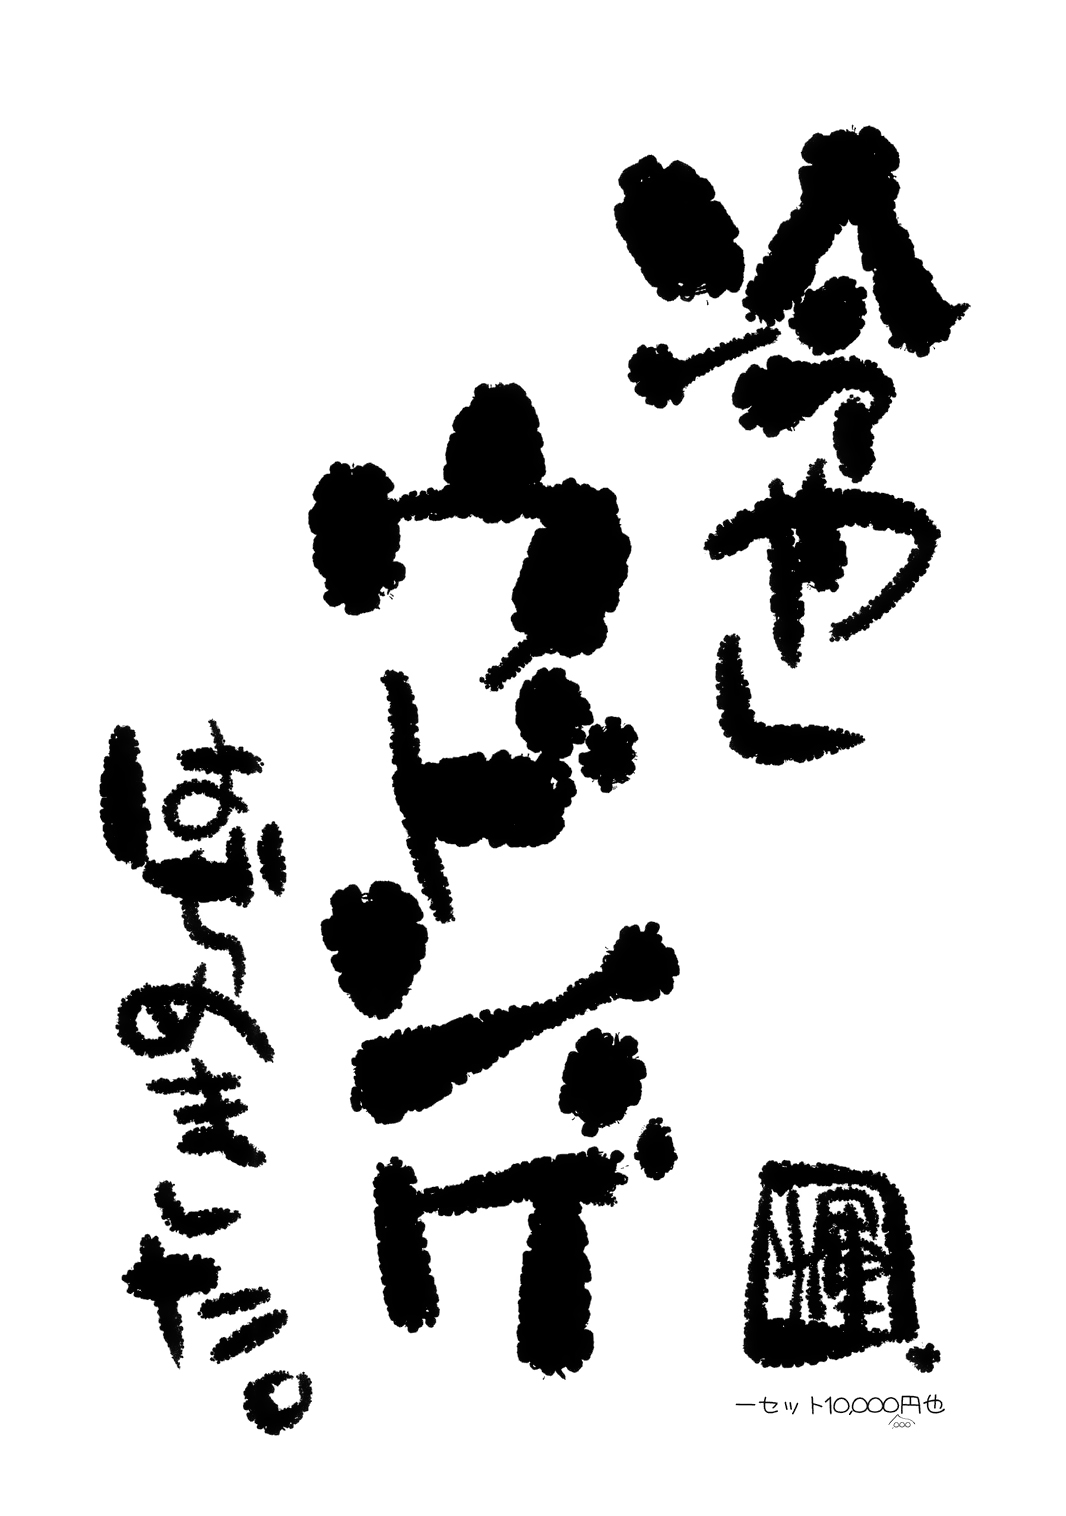 冷やし
ウドンゲ
はぢめました。
輝
一セット10,000円也
000